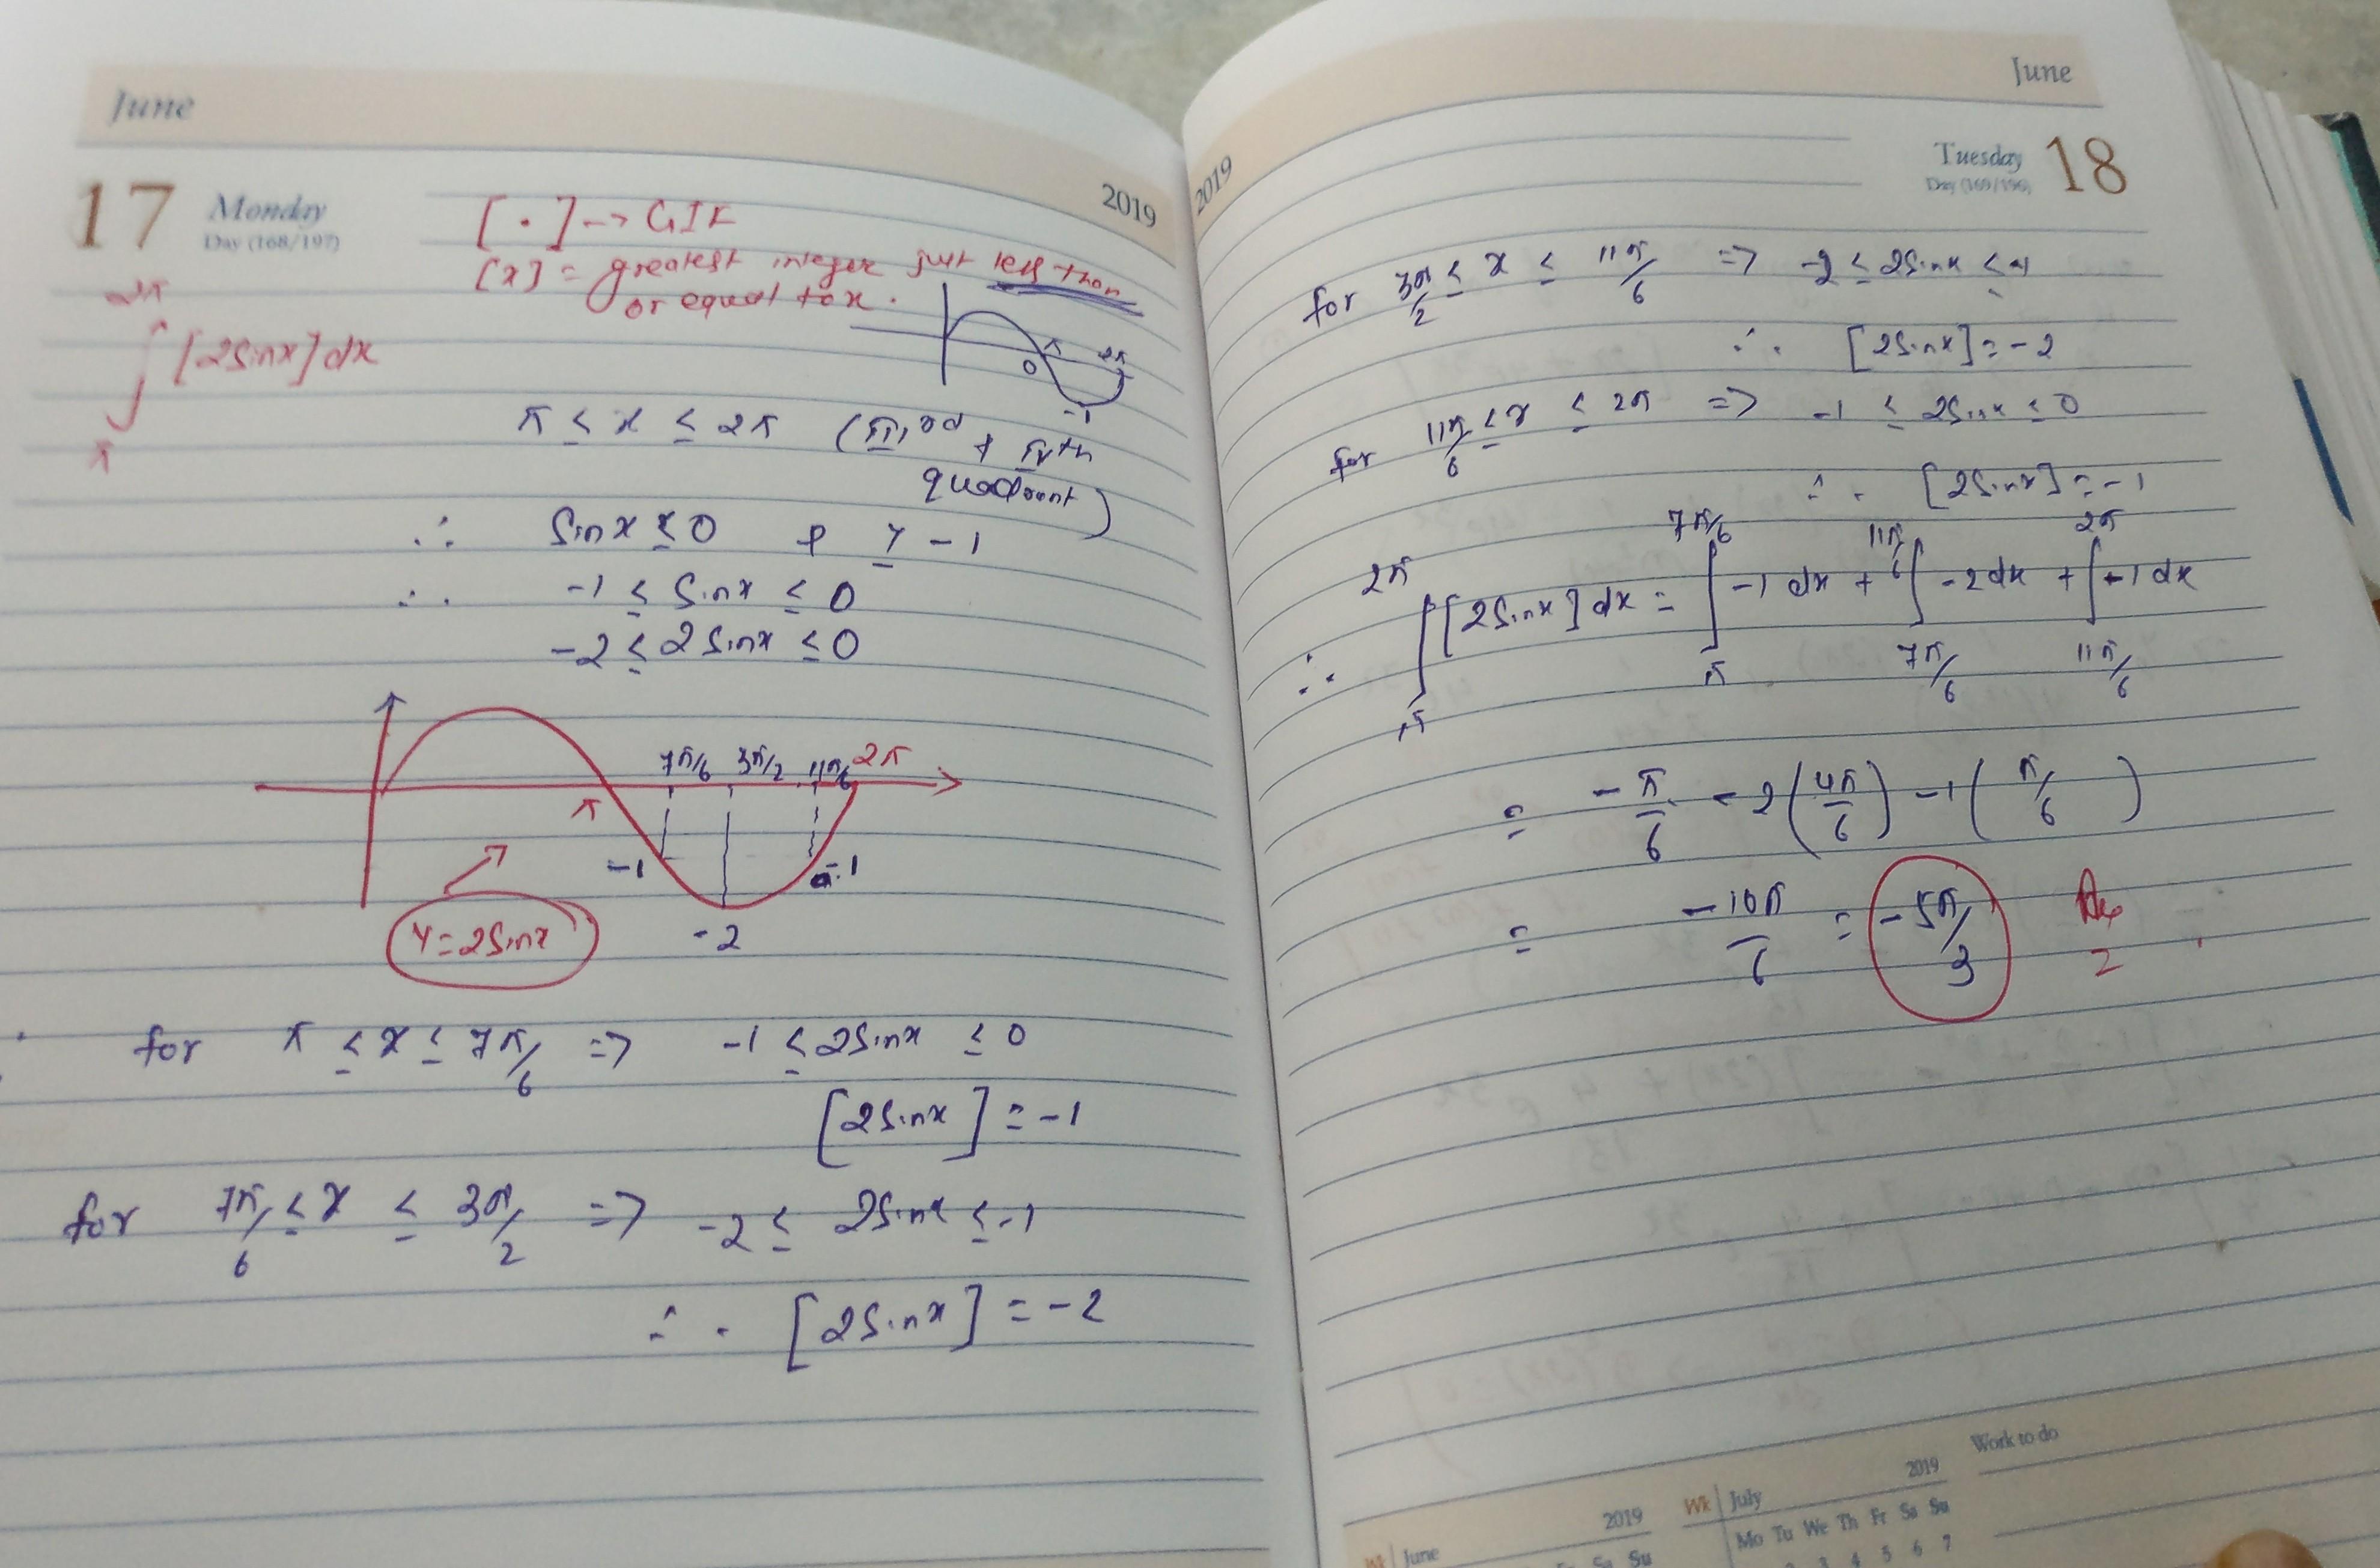 June
17 Monday
Day (168/197)
2019
[·] → GIF
[x] = greatest integer just less than
or equal to x.
2π
∫ [2Sinx] dx
π
π
2π
0
-1
π ≤ x ≤ 2π (III rd & IV th
quadrant)
∴ Sinx ≤ 0 & ≥ -1
∴ -1 ≤ Sinx ≤ 0
-2 ≤ 2Sinx ≤ 0
7π/6 3π/2 11π/6 2π
π
-1 -1
Y=2Sinx
-2
for π ≤ x ≤ 7π/6 => -1 ≤ 2Sinx ≤ 0
[2Sinx] = -1
for 7π/6 ≤ x ≤ 3π/2 => -2 ≤ 2Sinx ≤ -1
∴ [2Sinx] = -2
June
2019
Tuesday 18
Day (169/196)
for 3π/2 ≤ x ≤ 11π/6 => -2 ≤ 2Sinx ≤ -1
∴ [2Sinx] = -2
for 11π/6 ≤ x ≤ 2π => -1 ≤ 2Sinx ≤ 0
∴ [2Sinx] = -1
2π 7π/6 11π/6 2π
∴ ∫ [2Sinx] dx = ∫ -1 dx + ∫ -2dx + ∫ -1 dx
π π 7π/6 11π/6
= -π/6 - 2(4π/6) -1(π/6)
= -10π/6 = -5π/3
Work to do
2019
Wk June
Sa Su
2019
Wk July
Mo Tu We Th Fr Sa Su
3 4 5 6 7